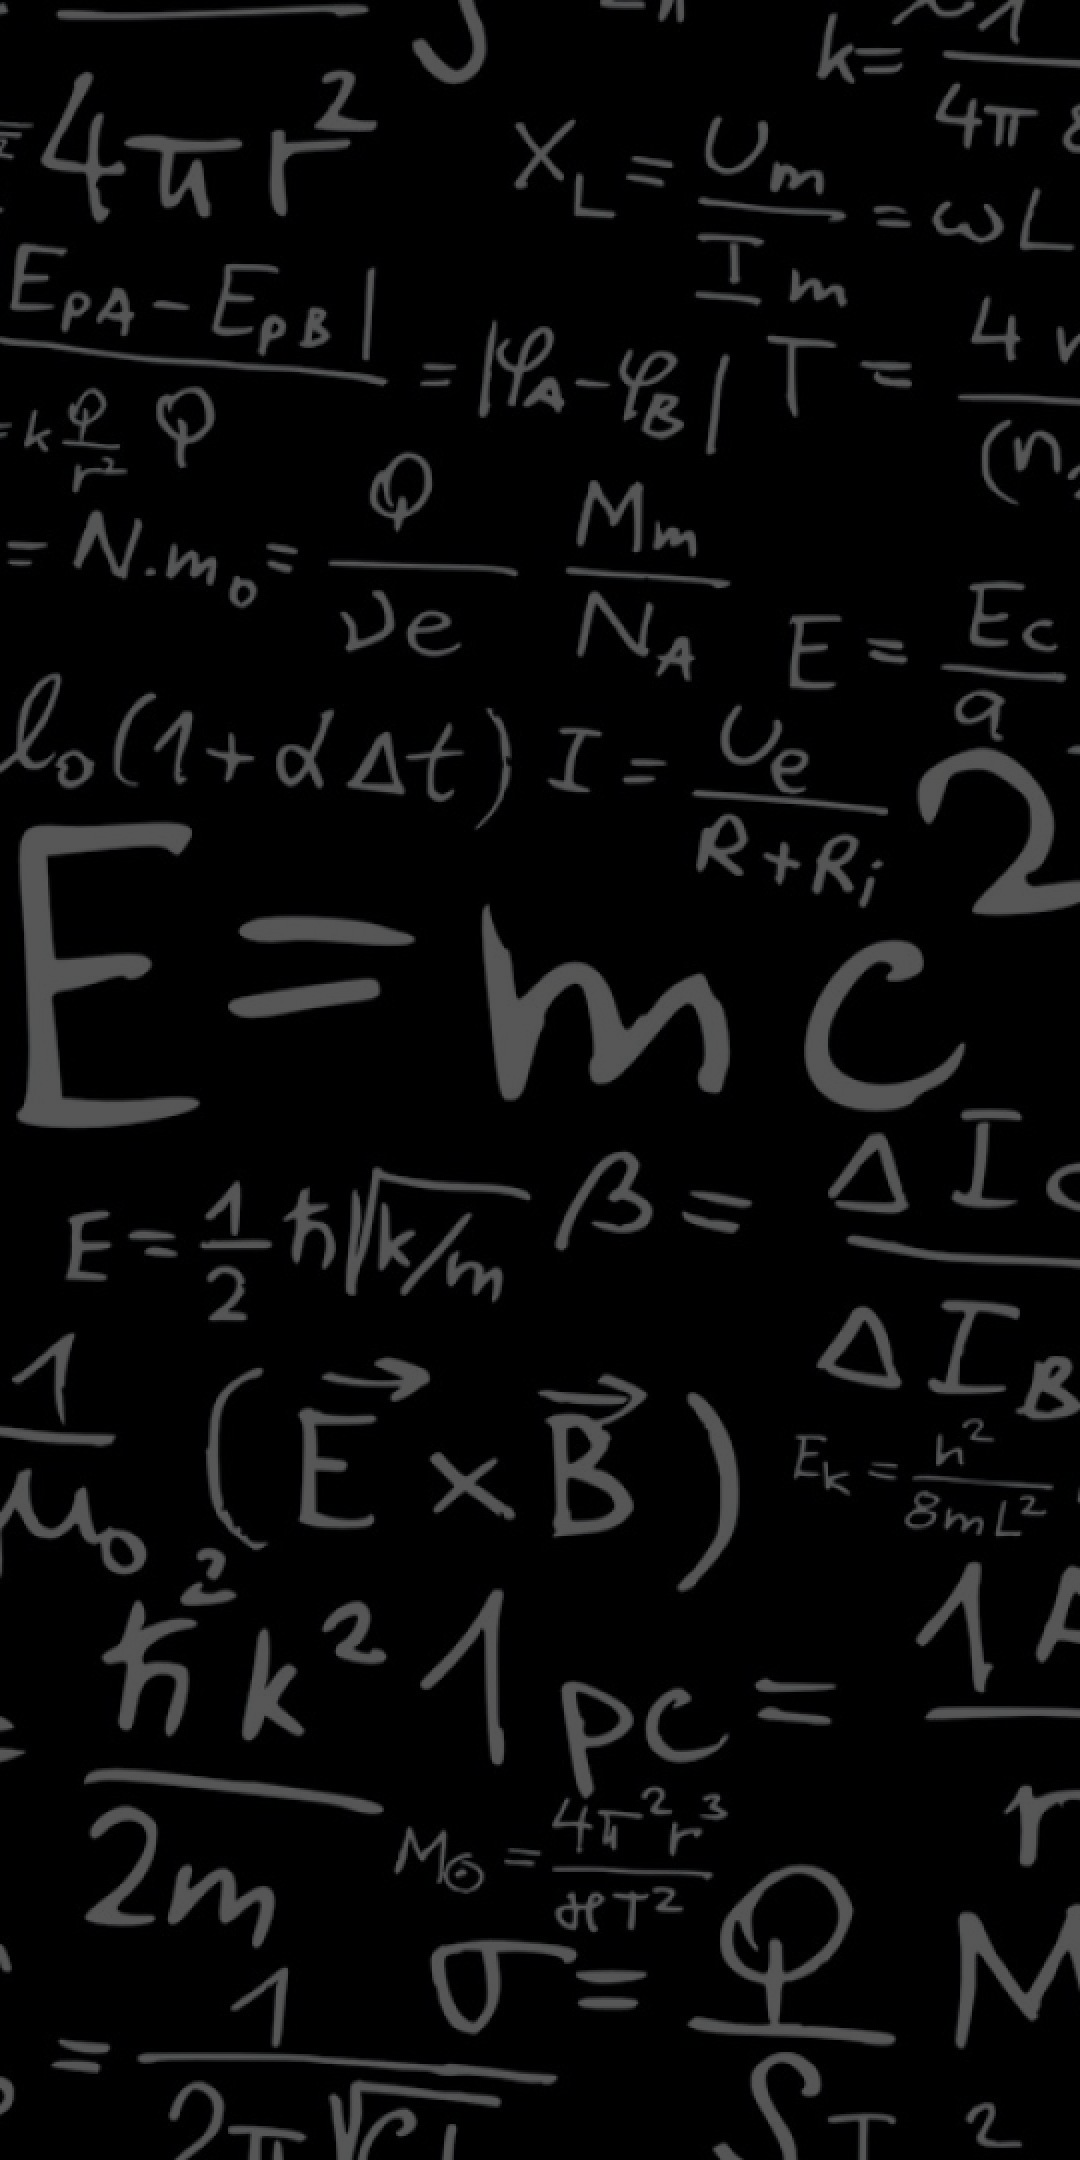 4πr²
k=
4π
X_L = U_m / I_m = ωL
E_pA - E_pB | = |φ_A - φ_B|
T = 4
(n
= k Q/r² Q
= N.m₀ = Q/νe M_m/N_A
E = E_c/a
l₀(1 + αΔt)
I = U_e / R+R_i
E = mc²
E = 1/2 ħ√k/m
β = ΔI_C / ΔI_B
1/μ₀ (E⃗ × B⃗)
E_k = h²/8mL²
ħ²k² / 2m
1 pc = 1 A / r
M_⊙ = 4π²r³ / ϰT²
σ = Q / S
M
= 1 / 2π√CL
T 2